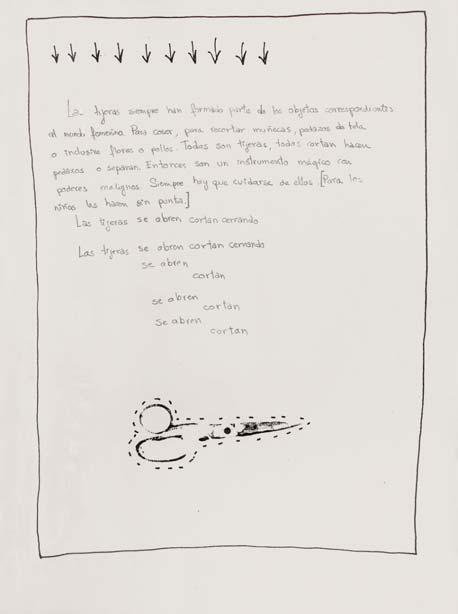 La tijeras siempre han formado parte de los objetos correspondientes
al mundo femenino. Para coser, para recortar muñecas, pedazos de tela
o inclusive flores o pollos. Todas son tijeras, todas cortan hacen
pedazos o separan. Entonces son un instrumento mágico con
poderes malignos. Siempre hay que cuidarse de ellas. [Para los
niños las hacen sin punta.]
Las tijeras se abren cortan cerrando
Las tijeras se abren cortan cerrando
se abren
cortan
se abren
cortan
se abren
cortan